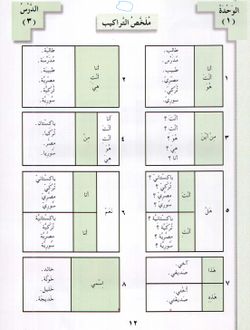 الوحدة (١)
ملخص التراكيب
الدرس (٣)
١
أنا
أنت
هو
طالب.
مدرس.
طبيب.
مصري.
تركي.
سوري.
٢
أنا
أنت
هي
طالبة.
مدرسة.
طبيبة.
مصرية.
تركية.
سورية.
٣
من أين
أنت ؟
أنت ؟
هو ؟
هي ؟
٤
أنا
أنت
هو
هي
من
باكستان.
تركيا.
مصر.
سوريا.
٥
هل
أنت
باكستاني ؟
تركي ؟
مصري ؟
سوري ؟
أنت
باكستانية ؟
تركية ؟
مصرية ؟
سورية ؟
٦
نعم
أنا
باكستاني.
تركي.
مصري.
سوري.
أنا
باكستانية.
تركية.
مصرية.
سورية.
٧
هذا
أخي.
صديقي.
هذه
أختي.
صديقتي.
٨
اسمي
خالد.
خولة.
خليل.
خديجة.
١٢